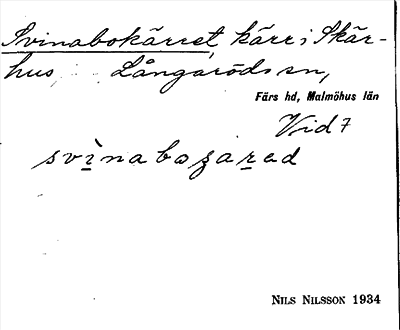 Svinabokärret, kärr i Skär-
hus, Långaröds sn,
Färs hd, Malmöhus län
Vid 7
svìnaboʒarəd
NILS NILSSON 1934